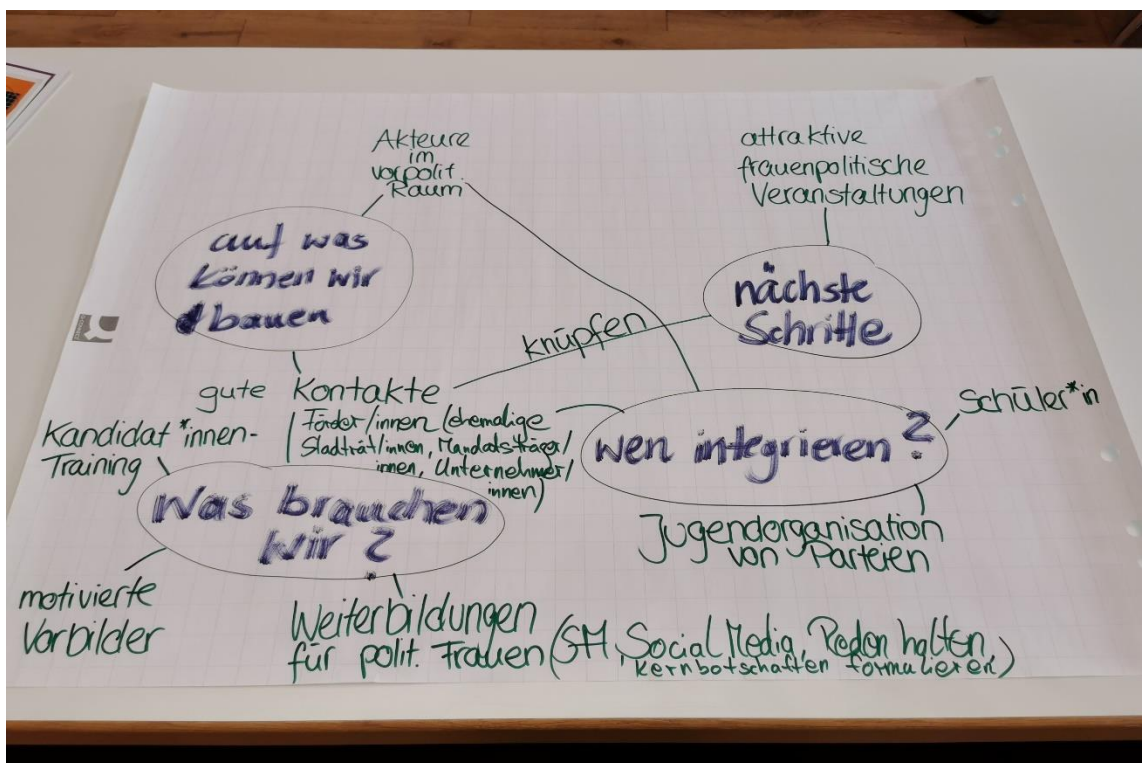 Akteure
im
vorpolit.
Raum
auf was
können wir
bauen
attraktive
frauenpolitische
Veranstaltungen
nächste
Schritte
knüpfen
gute Kontakte
Förder/innen (ehemalige
Stadträt/innen, Mandatsträger/
innen, Unternehmer/
innen)
Kandidat*innen-
Training
Schüler*in
wen integrieren?
Was brauchen
wir?
Jugendorganisation
von Parteien
motivierte
Vorbilder
Weiterbildungen
für polit. Frauen (SM, Social Media, Reden halten,
Kernbotschaften formulieren)